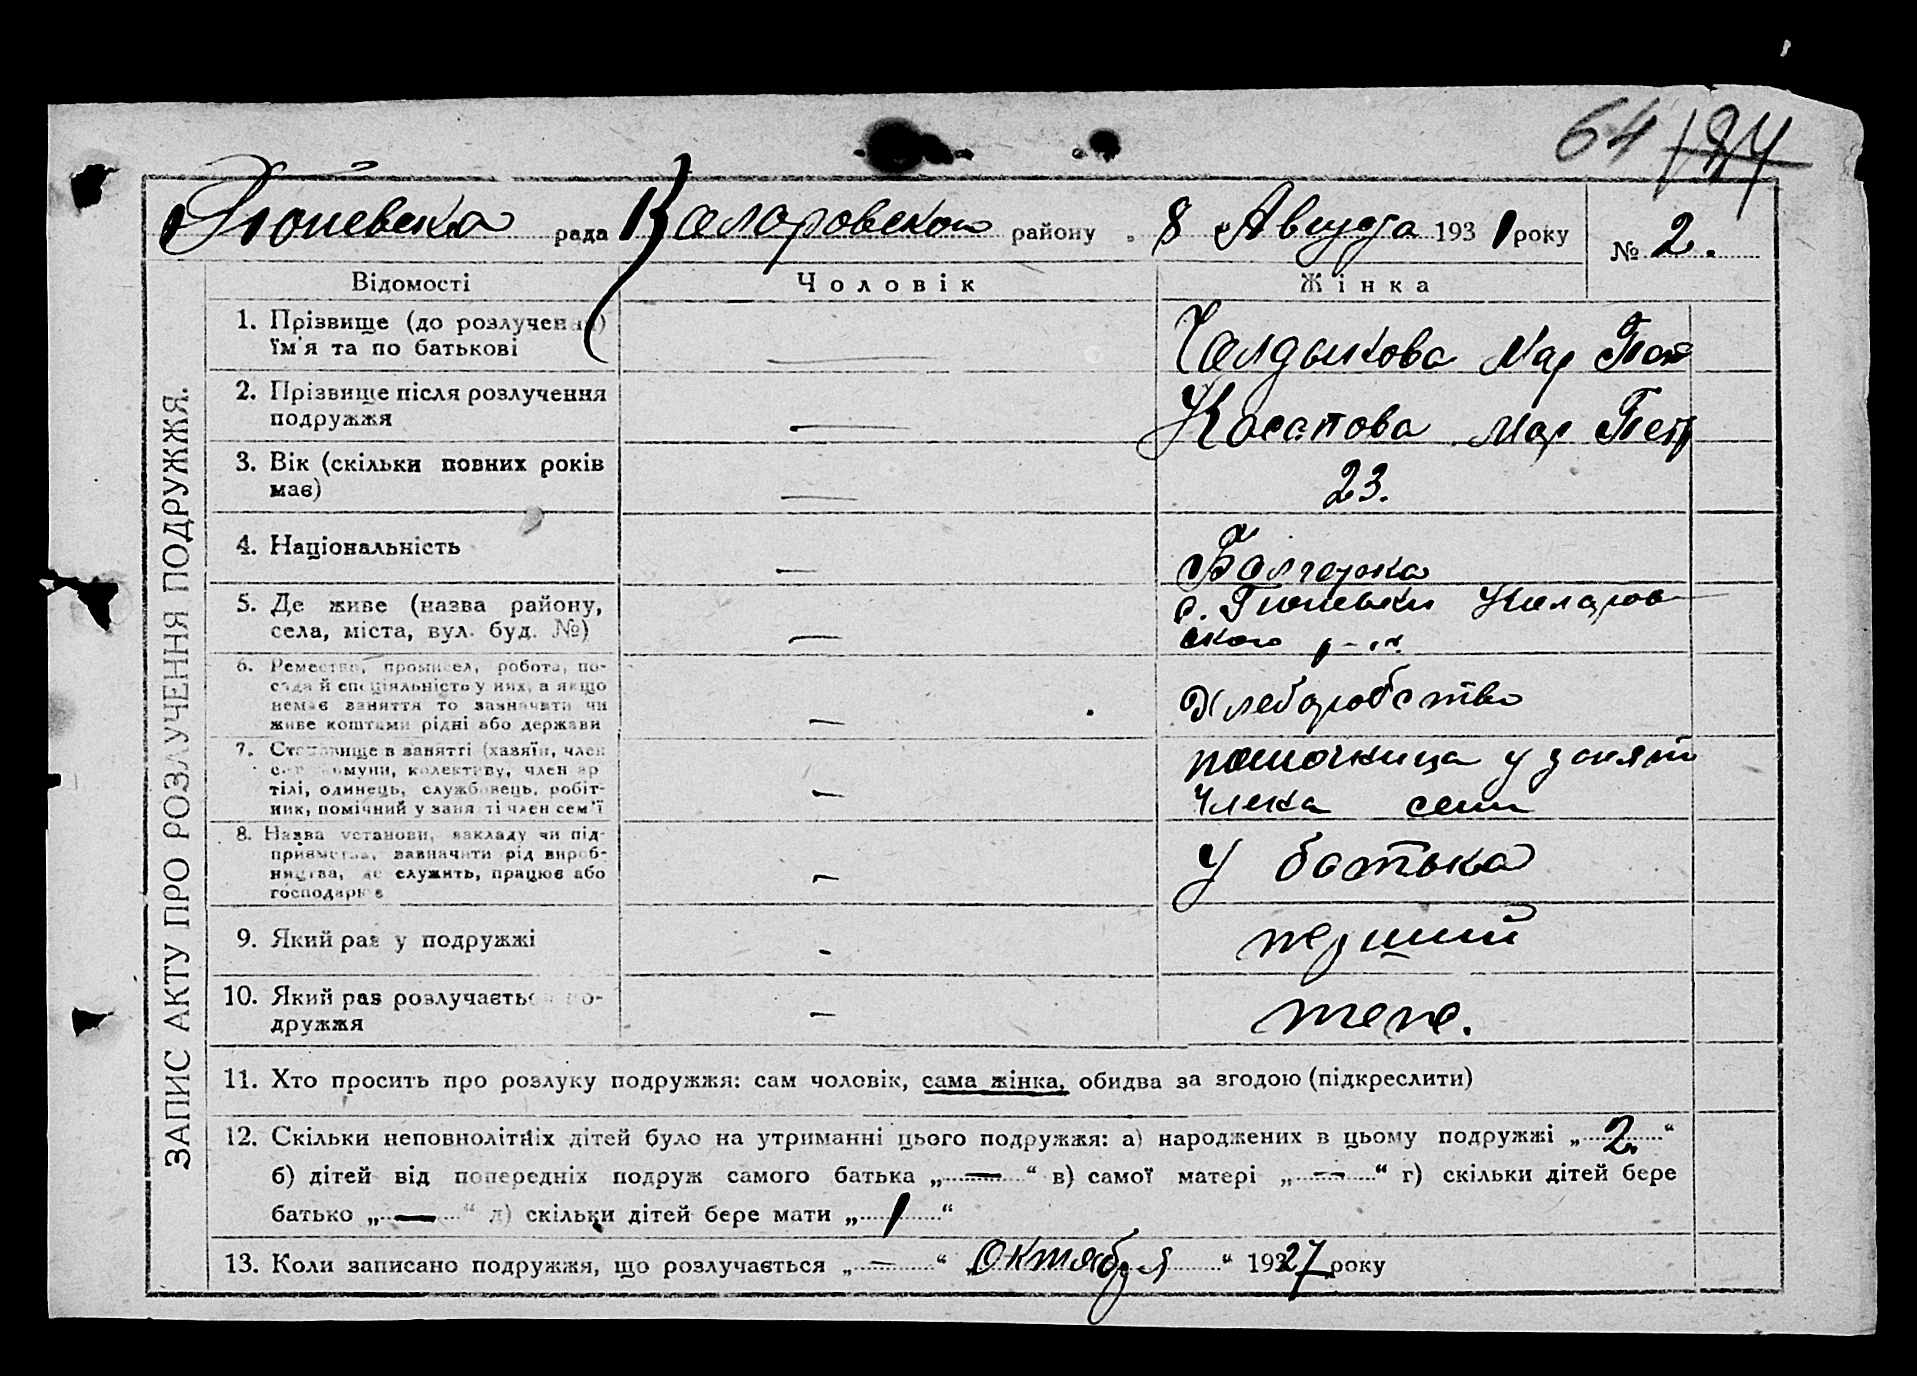 64 184
Тюпевська рада Коларовского району „ 8 „ Августа 1931 року № 2.
ЗАПИС АКТУ ПРО РОЗЛУЧЕННЯ ПОДРУЖЖЯ.
Відомості Чоловік Жінка
1. Прізвище (до розлучення) — Мар Пет
їм'я та по батькові
2. Прізвище після розлучення — Касапова Мар Петр
подружжя
3. Вік (скільки повних років — 23.
має)
4. Національність — Болгарка
5. Де живе (назва району, — с. Коларов
села, міста, вул. буд. №) ского р-на
6. Ремество, промисел, робота, по-
сада й спеціяльність у них, а якщо — Хлеборобство
немає заняття то зазначити чи
живе коштами рідні або держави
7. Становище в занятті (хазяїн, член помочница у заняти
с.-г. комуни, колективу, член ар-
тілі, одинець, службовець, робіт- — члена семи
ник, помічний у занятті член сем'ї
8. Назва установи, закладу чи під-
приємства, зазначити рід вироб- — У батька
ництва, де служить, працює або
господарює
9. Який раз у подружжі - перший
10. Який раз розлучається по- — тоже.
дружжя
11. Хто просить про розлуку подружжя: сам чоловік, сама жінка, обидва за згодою (підкреслити)
12. Скільки неповнолітніх дітей було на утриманні цього подружжя: а) народжених в цьому подружжі „ 2. “
б) дітей від попередніх подруж самого батька „ — “ в) самої матері „ — “ г) скільки дітей бере
батько „ — “ д) скільки дітей бере мати „ 1 “
13. Коли записано подружжя, що розлучається „ — “ „ Октября “ 1927 року